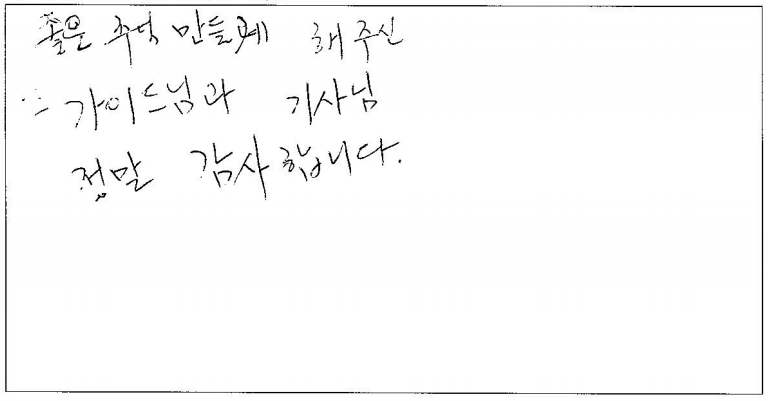 좋은 추억 만들게 해주신
가이드님과 기사님
정말 감사합니다.